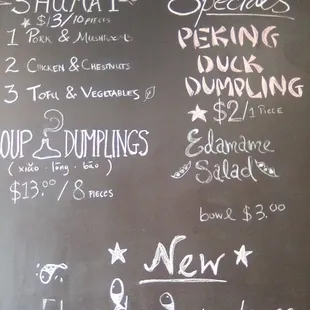 SHUMAI
$13/10 PIECES
1 PORK & MUSHROOMS
2 CHICKEN & CHESTNUTS
3 TOFU & VEGETABLES
SOUP DUMPLINGS
(xiǎo·lóng·bāo)
$13.00/8 PIECES
Specials
PEKING
DUCK
DUMPLING
$2/1 PIECE
Edamame
Salad
bowl $3.00
New